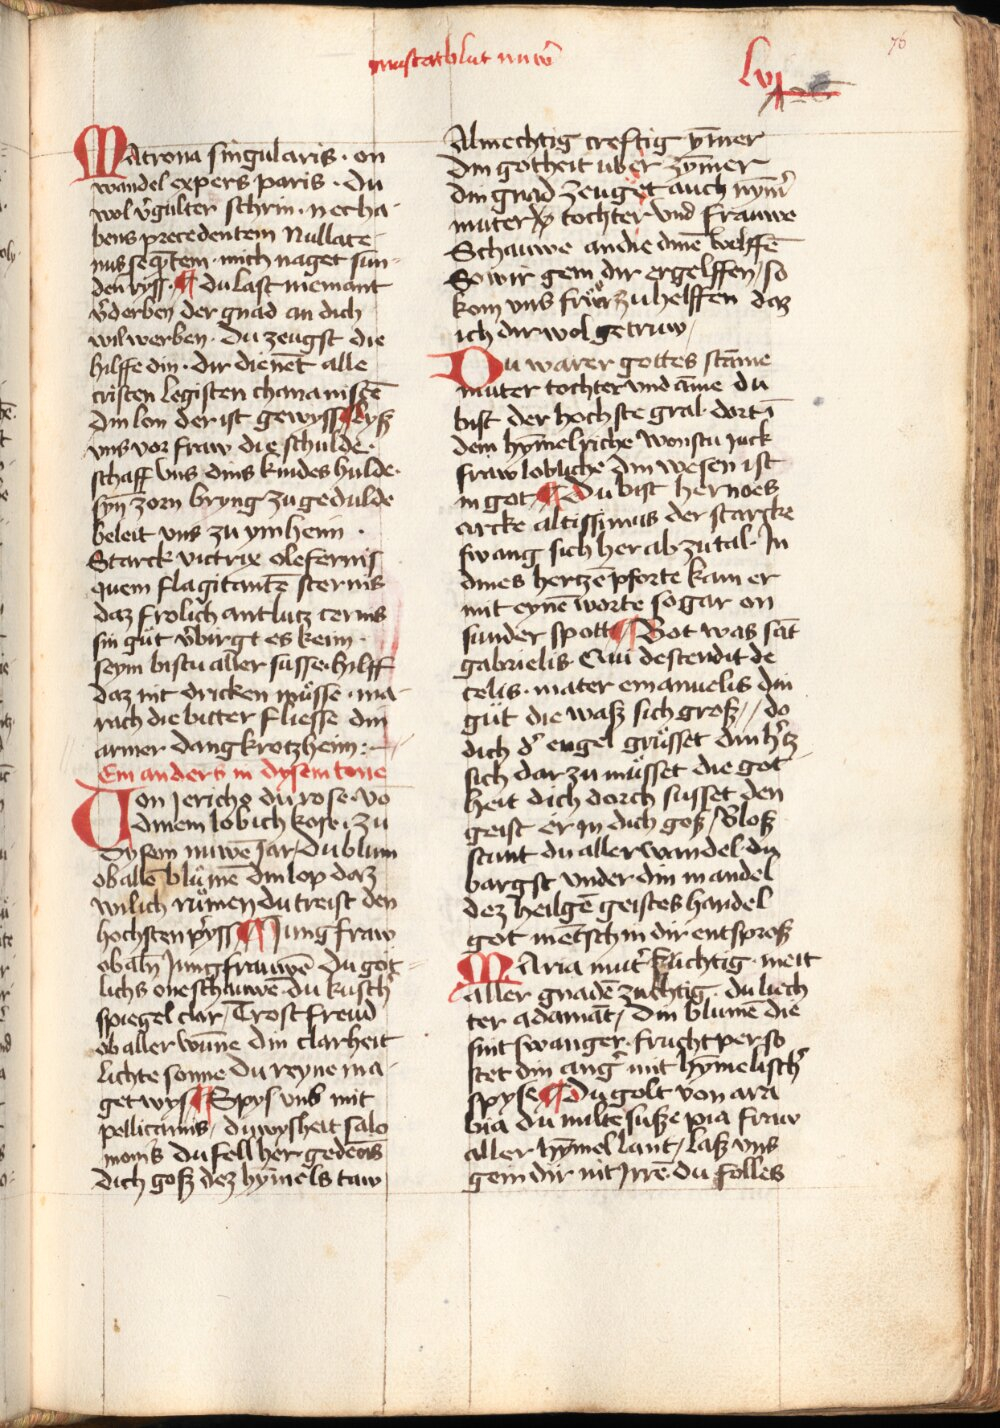 muscatblut nuw̄
lvj
76
MAtrona singularis · on
wandel expers paris · du
wol v̄gulter schrin · necha-
bens precedentem Nullate-
nus seq̄tem · mich naget sun-
den ryss · ¶ du last niemant
v̄derben der gnad an dich
wil werben · Du zeugst die
hilffe din · dir dienēt alle
cristen legisten chananistē
din lon der ist gewyss ¶ lyß
vns vor fraw die schulde ·
schaff vns dins kindes hulde ·
syn̄ zorn bryng zu gedulde
beleit vns zu ym heim ·
Starck victrix olefernis
quem flagitantē sternis
daz frolich antlutz cernis
sin gůt v̄birgt es keim ·
seym bistu aller süsse · hilff
daz nit dricken müsse · ma-
rach die bitter fliesse din
armer dangkrotzheim :
Ein anders in dysem tone
Uon Jericho du rose · vo
dinem lob ich kose · zu
dysem nuwē Jar / Du blum
ob allē blümē din lop daz
wil ich rümen du treist den
hochsten p̄yss ¶ Jungfraw
ob aln̄ Jungfrauwē du got-
lichs one schauwē · du kusch̄
spiegel clar / Trost freud
ob aller wūne din clarheit
lichte sonne du reyne ma-
get wys ¶ Spys vns mit
pellicanus / du wysheit salo
monis du fell her gedeōs
dich goß dez hȳmels taw
Almechtig creftig ȳmer
din gotheit uber zȳmer
din gnad zeuget auch nym̄
muter tochter vnd frauwe
Schauwe an die dinē welffē
So wir gein dir ergelffen / so
kom vns frůr zu helffen daz
ich dir wol getruw /
Du warer gottes stāme
muter tochter vnd āme du
bist der hochste gral · dort ī
dem hȳmelriche wonstu juck
fraw lobliche din wesen ist
in got ¶ Du bist her noes
arcke altissimus der starcke
swang sich her ab zu tal · In
dines hertzē pforte kam er
mit eynē worte so gar on
sunder spott ¶ Bot was sāt
gabrielis · Qui descendit de
celis · mater emanuelis din
güt die waß sich groß // do
dich d̄ engel grüsset din h̄tz
sich dar zu müsset die got
heit dich dorch susset den
geist er in dich goß / Bloß
stunt du aller wandel · du
bargst vnder din mandel
dez heilgē geistes handel
got mētsch in dir entsproß
MAria mut̄ fluchtig · meit
aller gnadē zuchtig · du liech
ter adamāt / din blumē die
sint swanger · frucht per so
stet din anḡ mit hȳmelisch̄
spyse ¶ Du golt von ara
bia du milte süße pia fraw
aller hȳmel lant / laß vns
gein dir nit Jrrē · du folles